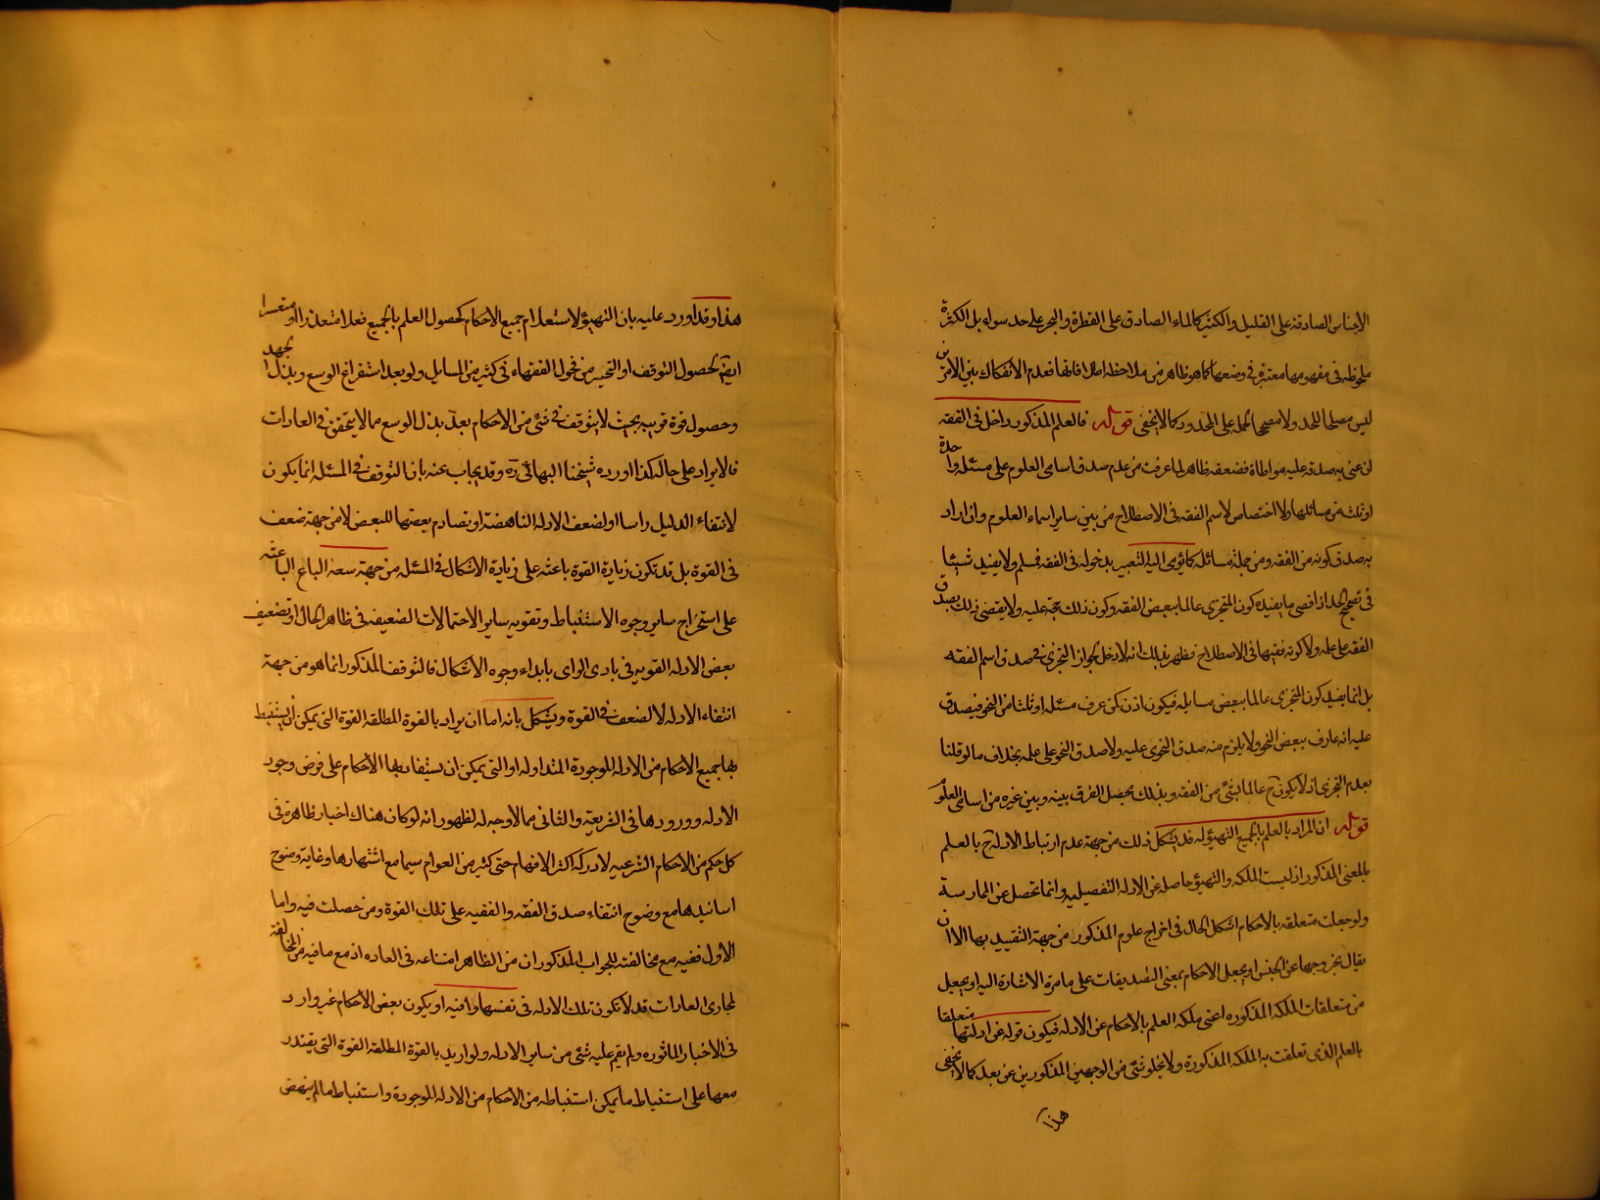 الاجناس الصادقة على القليل والكثير كالماء الصادق على القطرة والبحر على حد سواء بل الكثرة
ملحوظة فى مفهومها معتبرة فى وضعها كما هو ظاهر من ملاحظة اطلاقاتها فعدم الانفكاك بين الامرين
ليس مصححا للحد ولا مصححا لحمله على المحدود كما لا يخفى قوله فالعلم المذكور داخل فى الفقه
ان عنى به صدقه عليه مواطاة فضعفه ظاهر لما عرفت من عدم صدق اسامى العلوم على مسئلة واحدة
او ثلث من مسائلها ولا اختصاص لاسم الفقه فى الاصطلاح من بين ساير اسماء العلوم وان اراد
به صدق كونه من الفقه ومن جملة مسائله كما يؤمى اليه التعبير بدخوله فى الفقه فمسلم ولا يفيد شيئا
فى تصحيح الحد اذ اقصى ما يفيده كون المتجزى عالما ببعض الفقه وكون ذلك حجة عليه ولا يقتضى ذلك بصدق
الفقه على علمه ولا كونه فقيها فى الاصطلاح فظهر بذلك انه لا دخل لجواز التجزى فى صدق اسم الفقه
بل انما يفيد كون المتجزى عالما ببعض مسايله فيكون اذن كمن عرف مسئلة او ثلثا من النحو فيصدق
عليه انه عارف ببعض النحو ولا يلزم منه صدق النحوى عليه ولا صدق النحو على علمه بخلاف ما لو قلنا
بعدم التجزى اذ لا يكون ح عالما بشئ من الفقه وبذلك يحصل الفرق بينه وبين غيره من اسامى العلوم
قوله ان المراد بالعلم بالجميع التهيؤ له قد يشكل ذلك من جهة عدم ارتباط الادلة ح بالعلم
بالمعنى المذكور اذ ليست الملكه والتهيؤ حاصله عن الادله التفصيليه وانما تحصل عن الممارسة
ولو جعلت متعلقه بالاحكام اشكل الحال فى اخراج علوم المذكور من جهة التقييد بها الا ان
يقال بخروجها عن الجنس او يجعل الاحكام بمعنى التصديقات على ما مرة الاشارة اليه او يجعل
من متعلقات الملكه المذكوره اعنى ملكه العلم بالاحكام عن الادله فيكون قوله عن ادلتها متعلقا
بالعلم الذى تعلقت به الملكه المذكورة ولا يخلو شئ من الوجهين المذكورين عن بعد كما لا يخفى
هذا
هذا وقد اورد عليه بان التهيؤ لاستعلام جميع الاحكام كحصول العلم بالجميع فعلا متعذر او متعسرا
ايضا لحصول التوقف او التحير من فحول الفقهاء فى كثير من المسايل ولو بعد استفراغ الوسع وبذل الجهد
وحصول قوة قريبه بحيث لا يتوقف فى شئ من الاحكام بعد بذل الوسع مما لا يتحقق فى العادات
فالايراد على حاله كذا اورده شيخنا البهائى ره وقد يجاب عنه بان التوقف فى المسئله انما يكون
لانتفاء الدليل راسا او لضعف الادله الناهضة او تصادم بعضها للبعض لا من جهة ضعف
فى القوة بل قد تكون زيادة القوة باعثه على زيادة الاشكال فى المسئله من جهة سعة الباع الباعثه
على استخراج ساير وجوه الاستنباط وتقويه ساير الاحتمالات الضعيفه فى ظاهر الحال او تضعيف
بعض الادله القويه فى بادى الراى بابداء وجوه الاشكال فالتوقف المذكور انما هو من جهة
انتفاء الادله لا لضعف فى القوة ويشكل بانه اما ان يراد بالقوة المطلقه القوة التى يمكن ان يستنبط
بها جميع الاحكام من الادله الموجودة المتداوله او التى يمكن ان يستفاد بها الاحكام على فرض وجود
الادله وورودها فى الشريعة والثانى مما لا وجه له لظهور انه لو كان هناك اخبار ظاهرة فى
كل حكم من الاحكام الشرعيه لادركه اكثر الافهام حتى كثير من العوام سيما مع اشتهارها وغاية وضوح
اسانيدها مع وضوح انتفاء صدق الفقه والفقيه على تلك القوة ومن حصلت فيه واما
الاول ففيه مع مخالفته للجواب المذكور ان من الظاهر امتناعه فى العاده اذ مع ما فيه من المخالفة
لمجارى العادات قد لا تكون تلك الادله فى نفسها وافيه او يكون بعض الاحكام غير وارد
فى الاخبار الماثوره ولم يقم عليه شئ من ساير الادله ولو اريد بالقوة المطلقه القوة التى يقتدر
معها على استنباط ما يمكن استنباطه من الاحكام من الادله الموجودة واستنباط ما لم ينهض